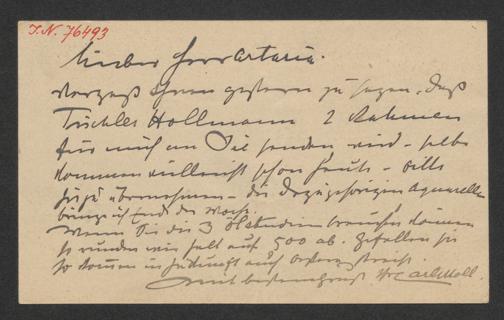 I.N. 76493
Lieber Herr Artaria.
Vergaß Ihnen gestern zu sagen, daß
Tischler Hollmann 2 Rahmen
für mich an Sie senden wird – selbe
kommen vielleicht schon heute – bitte
sie zu übernehmen – die dazugehörigen Aquarelle
bringe ich Ende der Woche.
Wenn Sie die 3 Ölstudien brauchen können
so runden wir halt auf 500 ab. Gefallen sie
so kommen in Zukunft auch
mit bestem Gruß Ihr Carl Moll.